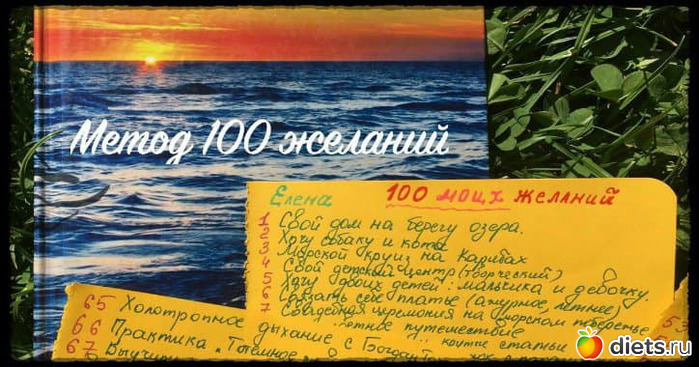 Метод 100 желаний
Елена 100 моих желаний
1 Свой дом на берегу озера.
2 Хочу собаку и кота
3 Морской круиз на Карибах
4 Свой детский центр (творческий)
5 Хочу двоих детей: мальчика и девочку.
6 Связать себе платье (ажурное, летнее)
7 Свадебная церемония на морском побережье
путешествие
крутые статьи
65 Холотропное дыхание с
66 Практика "Тотемное
67 Выучить
53
diets.ru